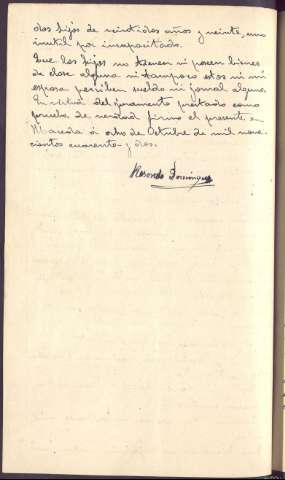 dos hijos de veintidos años y veinte, uno
inutil por incapacitado.
Que los hijos no tienen ni poseen bienes
de clase alguna ni tampoco estos ni mi
esposa perciben sueldo ni jornal alguno.
En virtud del juramento prestado como
prueba de verdad firmo el presente en
a ocho de Octubre de mil nove-
cientos cuarenta y dos.
Rosendo Dominguez